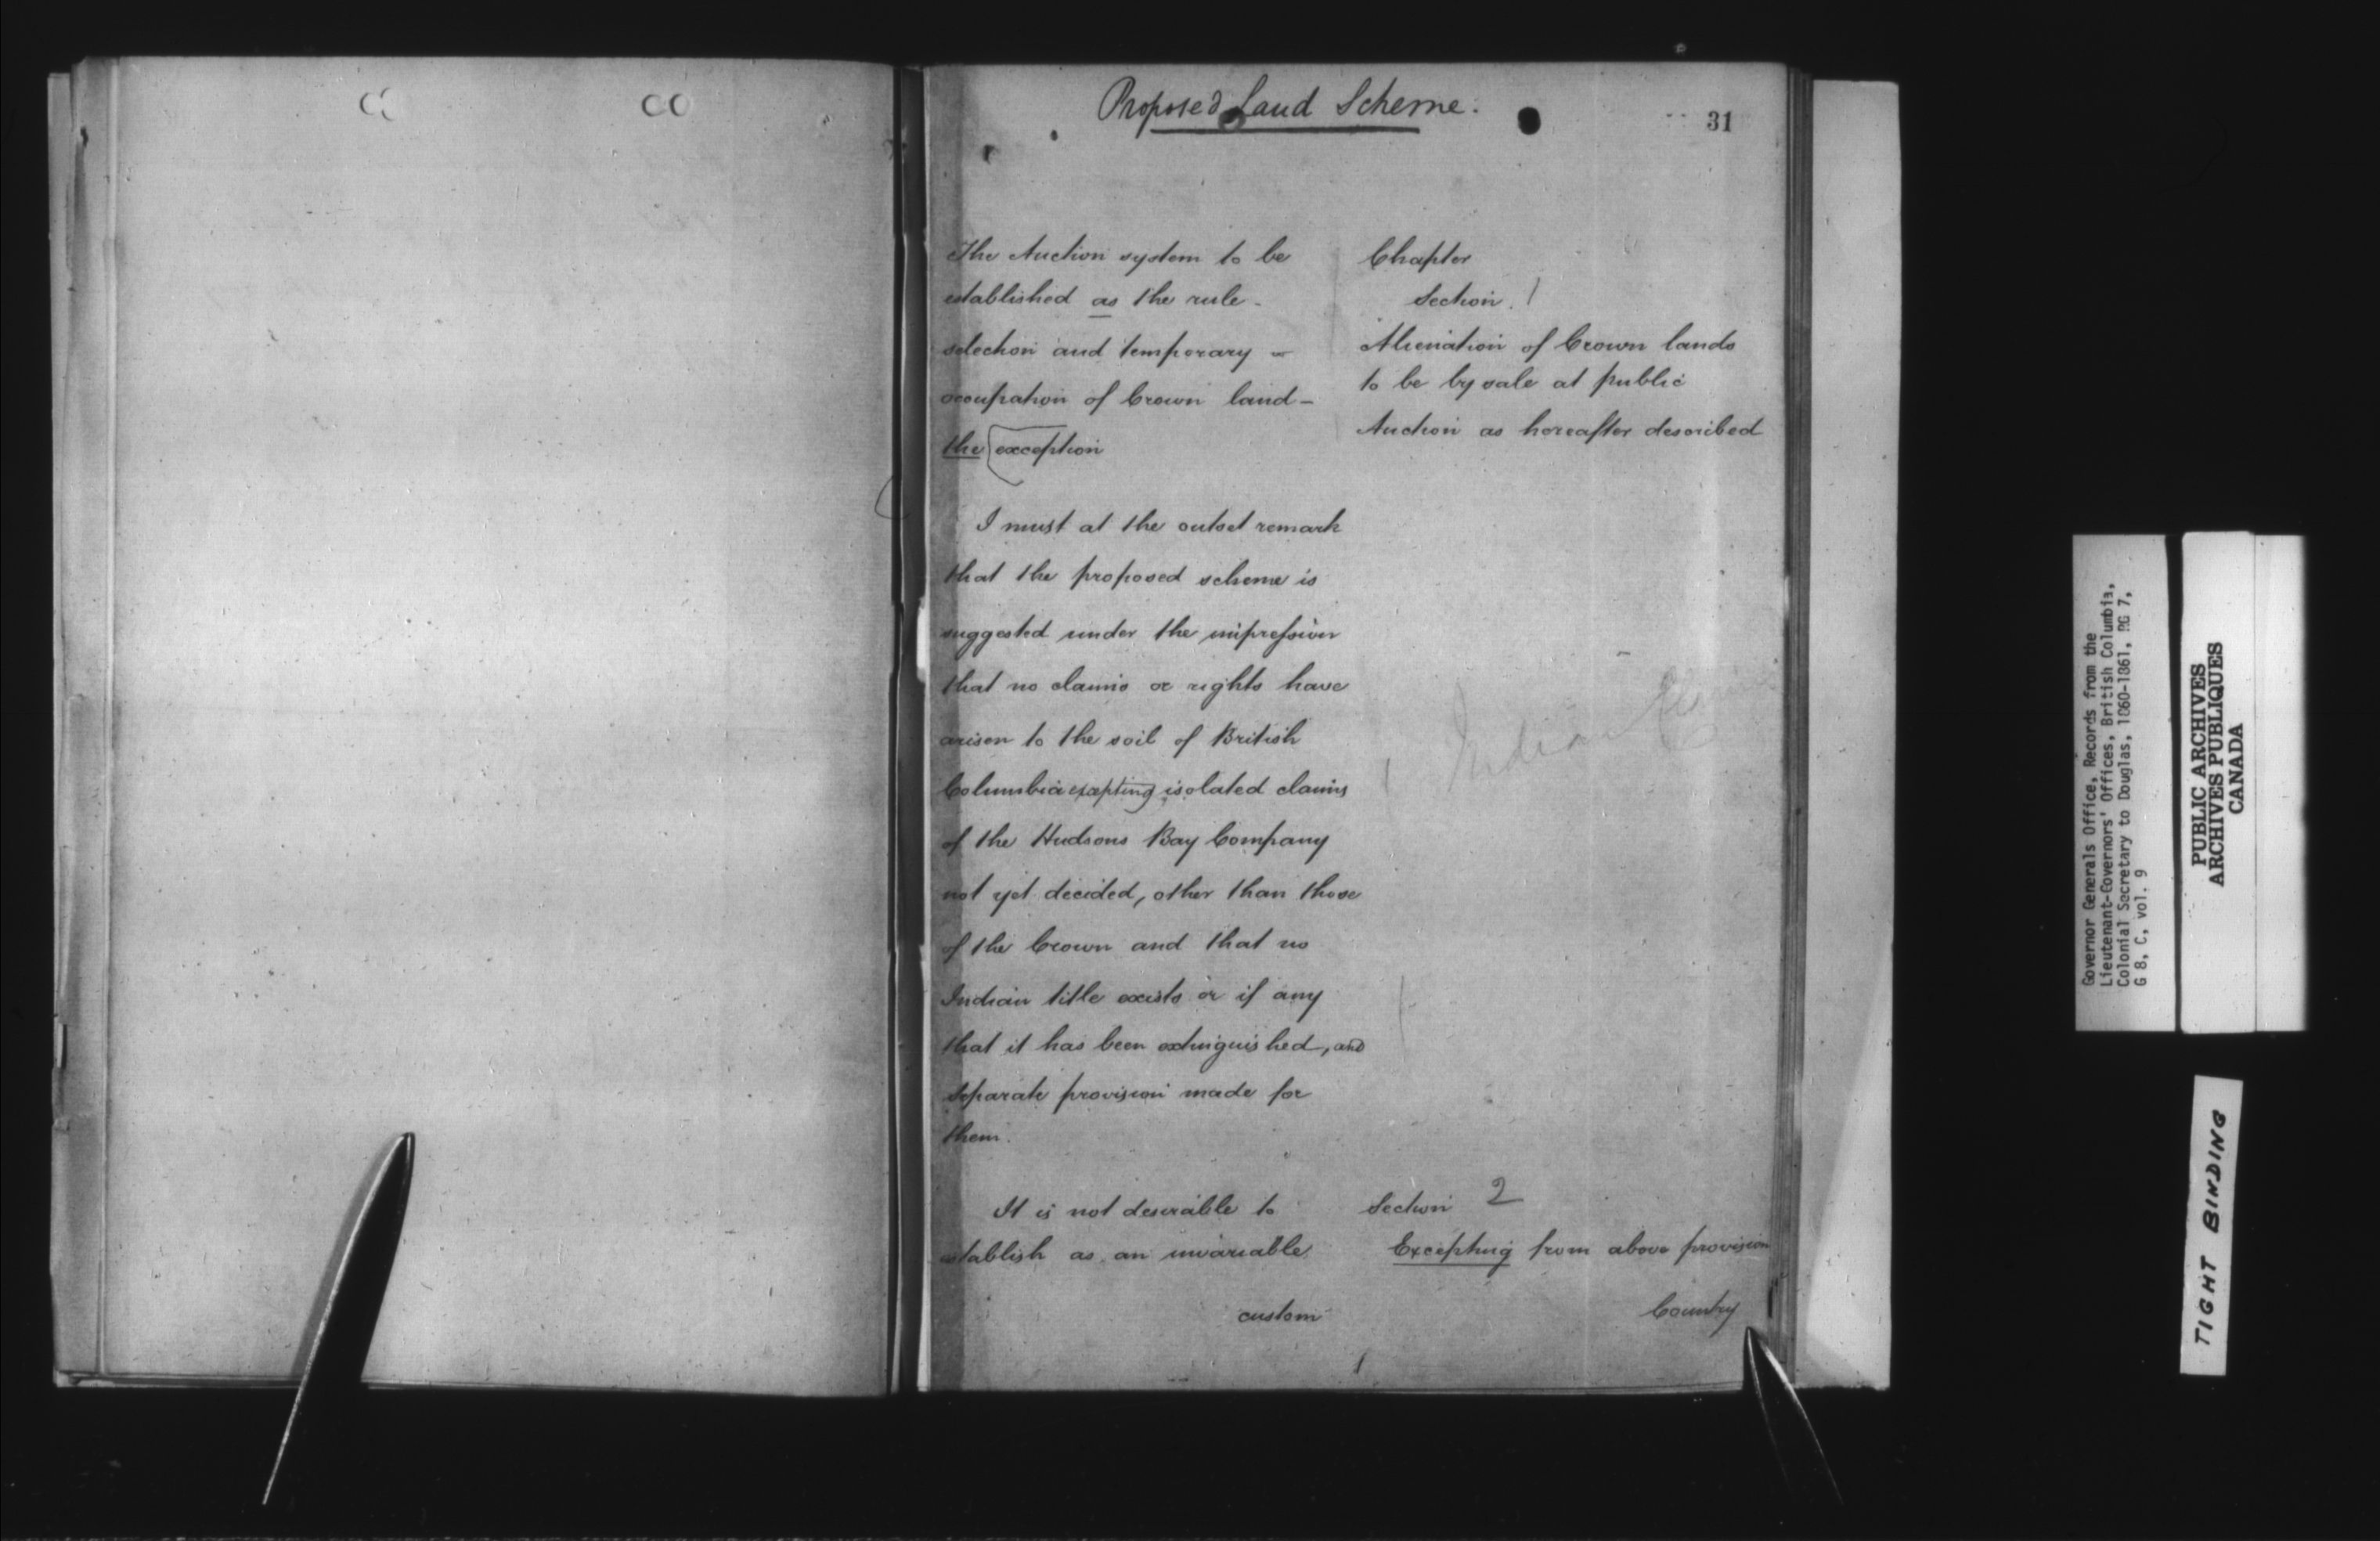 Proposed Land Scheme.
31
The Auction system to be
established as the rule -
selection and temporary -
occupation of Crown land -
the exception
I must at the outset remark
that the proposed scheme is
suggested under the impression
that no claims or rights have
arisen to the soil of British
Columbia excepting isolated claims
of the Hudsons Bay Company
not yet decided, other than those
of the Crown and that no
Indian title exists or if any
that it has been extinguished, and
separate provision made for
them.
It is not desirable to
establish as an invariable
custom
Chapter
Section. 1
Alienation of Crown lands
to be by sale at public
Auction as hereafter described
Indian
Section 2
Excepting from above provision
Country
Governor Generals Office, Records from the
Lieutenant-Governors' Offices, British Columbia,
Colonial Secretary to Douglas, 1860-1861, RG 7,
G 8, C, vol. 9
PUBLIC ARCHIVES
ARCHIVES PUBLIQUES
CANADA
TIGHT BINDING